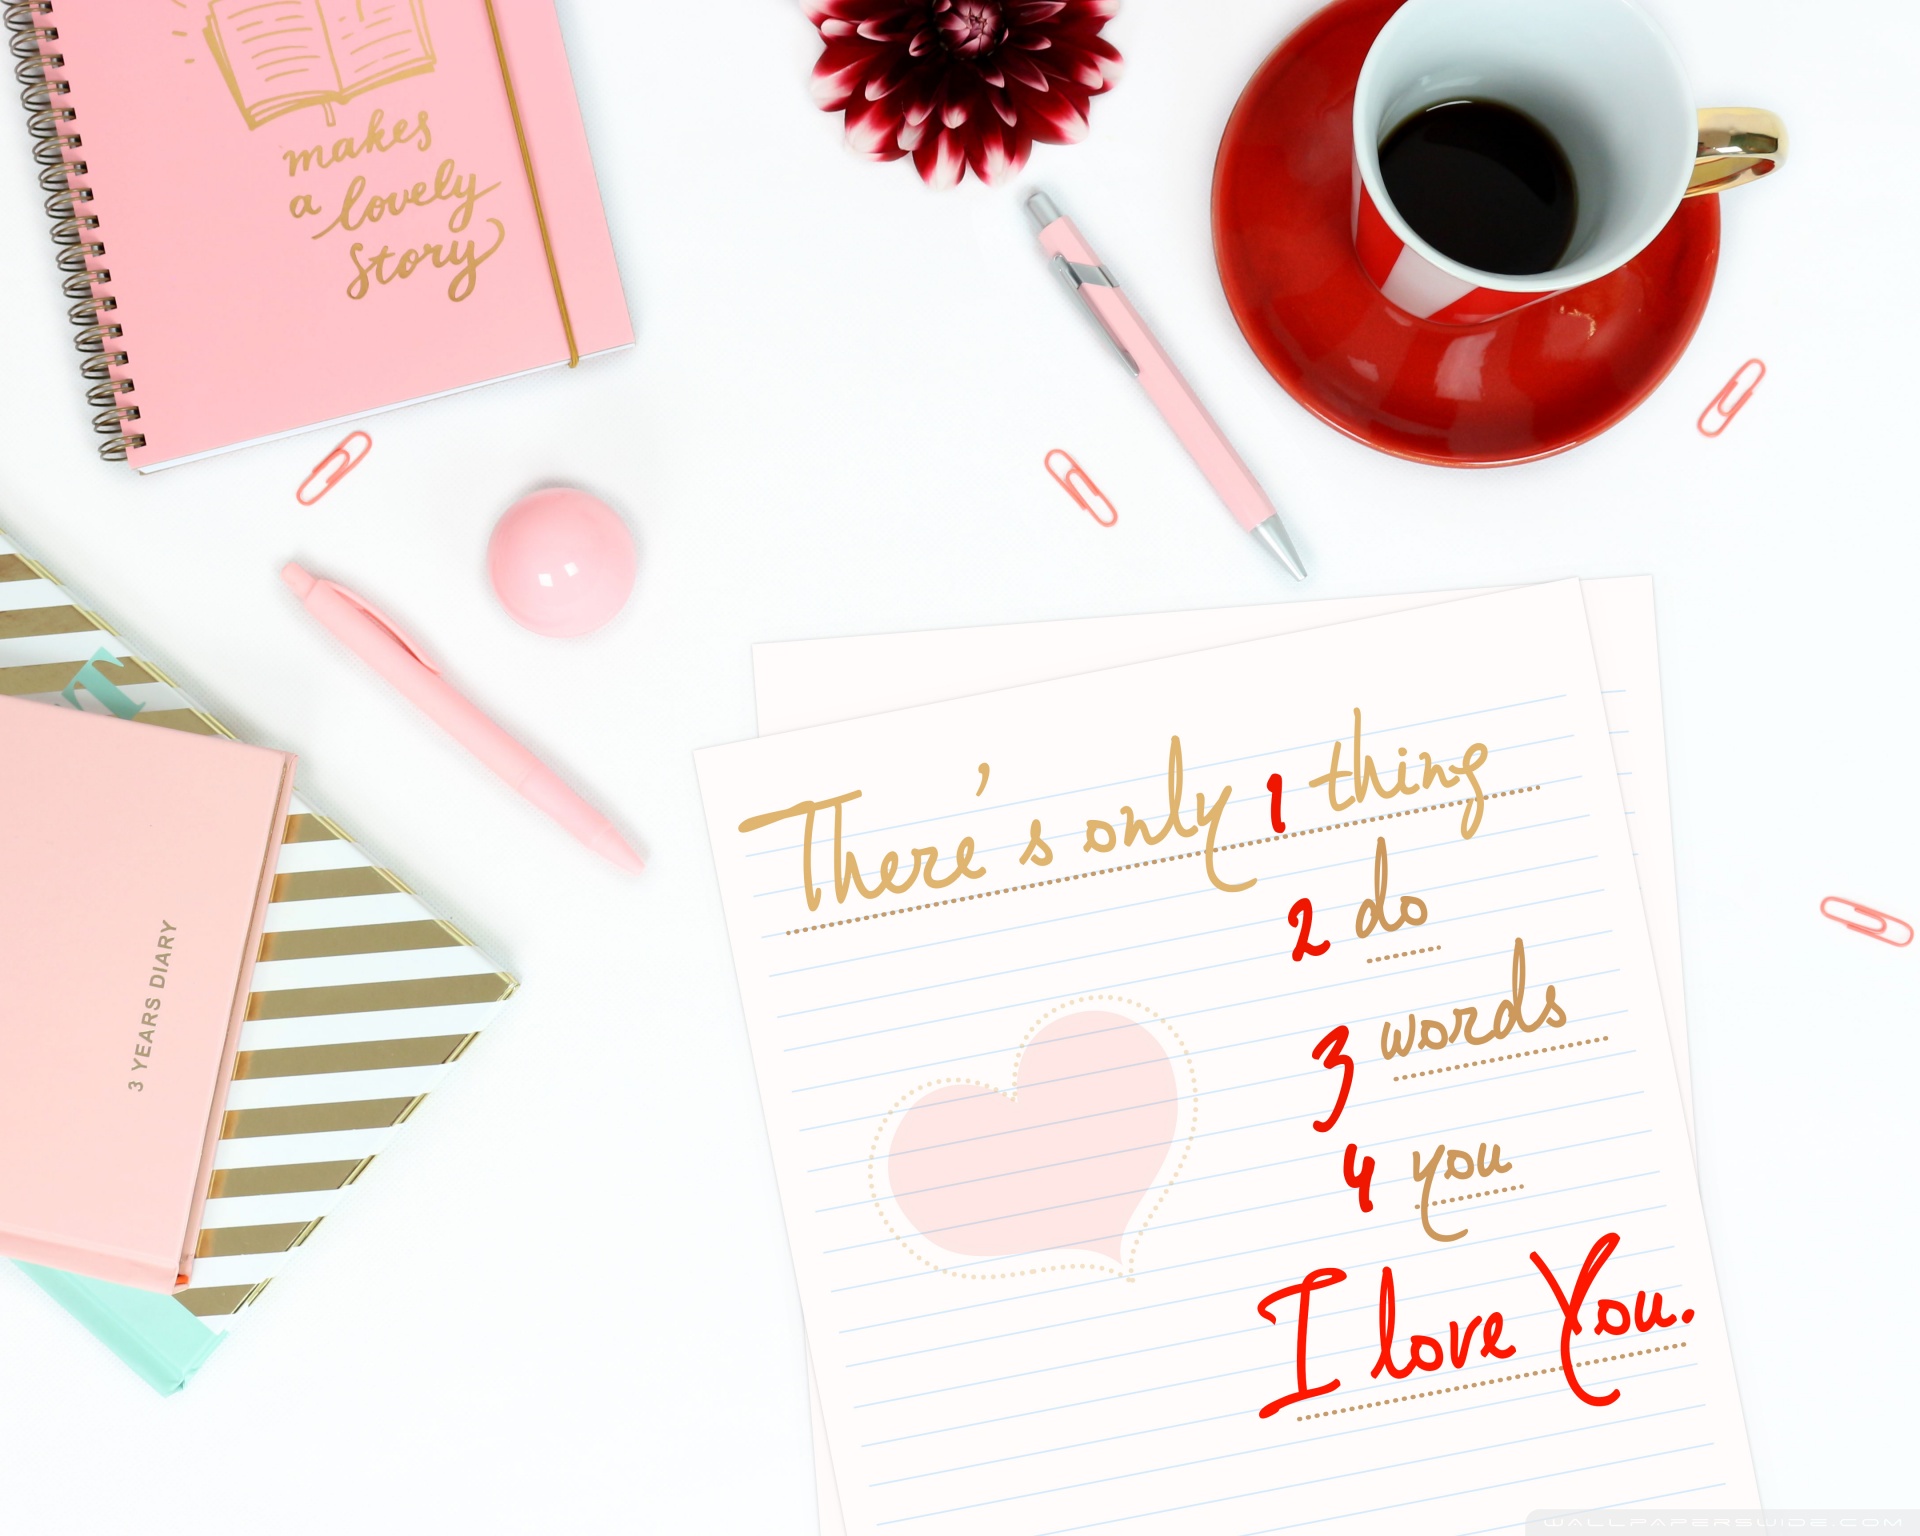 makes
a lovely
story
T
3 YEARS DIARY
There's only 1 thing
2 do
3 words
4 you
I love You.
WALLPAPERSWIDE.COM